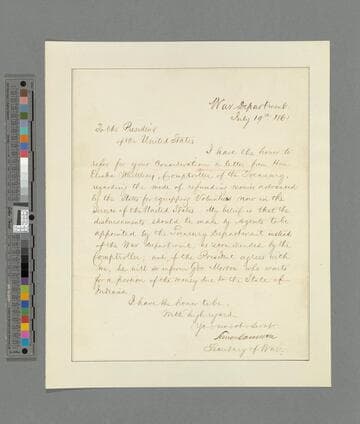 War Department.
July 19th 186
To the President
of the United States
I have the honor to
refer for your consideration a letter from Hon
Elisha Whittlesey, Comptroller of the Treasury,
regarding the mode of refunding monies advanced
by the States for equipping Volunteers now in the
Service of the United States. My belief is that the
disbursements should be made by agents to be
appointed by the Treasury Department instead
of the War Department, as recommended by the
Comptroller, and if the President agrees with
me, he will so inform Gov. Morton who waits
for a portion of the money due to the State of
Indiana.
I have the honor to be.
With high regard
Yr. most obt. Servt.
Simon Cameron
Secretary of War.